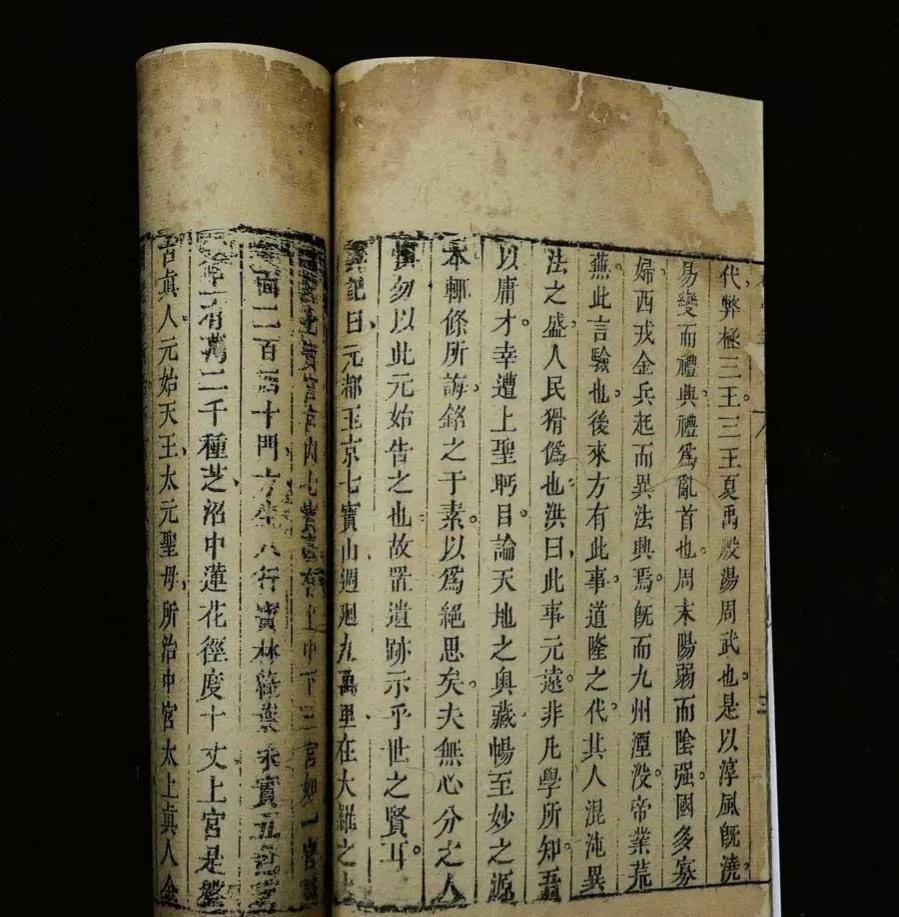 代弊極三王。三王夏禹殷湯周武也。是以淳風既澆。
易變而禮興。禮爲亂首也。周末陽弱而陰强。國多寡
婦。西戎金兵起而異法興焉。既而九州湮没。帝業荒
蕪。此言驗也。後來方有此事。道隆之代。其人混沌。異
法之盛。人民猾僞也。洪曰。此事元遠。非凡學所知。吾
以庸才。幸遭上聖眄目。論天地之奥藏。暢至妙之源
本。輒條所誨。銘之于素。以爲絕思矣。夫無心分之人。
慎勿以此元始告之也。故置遺跡示乎世之賢耳。
眞記曰。元都玉京七寶山。週迴九萬里。在大羅之上
七寶宮宮内七寶臺有上中下三宮如一宮城
一面二百四十門。方生八行寶林綠葉朱實五色芝
英上有萬二千種。芝沼中蓮花徑度十丈上宮是盤
古眞人元始天王。太元聖母所治中宮太上眞人金